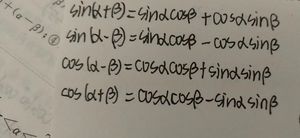 sin(α+β)=sinαcosβ+cosαsinβ
+(α-β):④
sin(α-β)=sinαcosβ-cosαsinβ
cos(α-β)=cosαcosβ+sinαsinβ
cos(α+β)=cosαcosβ-sinαsinβ